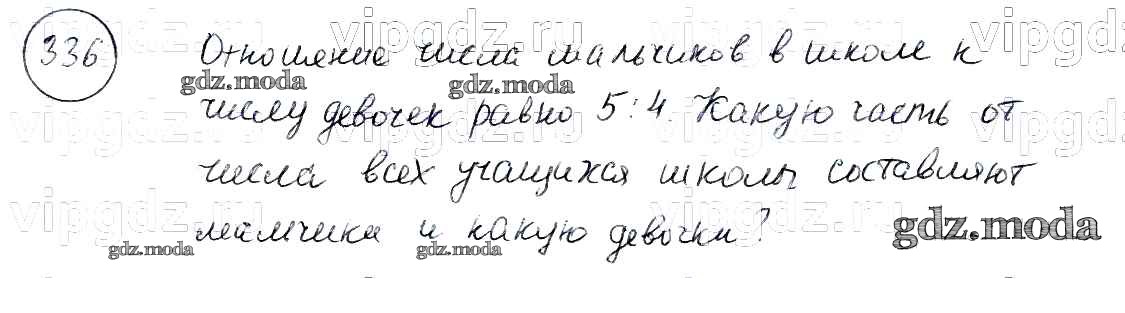 336
Отношение числа мальчиков в школе к
числу девочек равно 5:4. Какую часть от
числа всех учащихся школы составляют
мальчики и какую девочки?
vipgdz.ru vipgdz.ru vipgdz.ru vipgdz
gdz.moda gdz.moda
vipgdz.ru vipgdz.ru vipgdz.ru vipgdz
vipgdz.ru vipgdz.ru vipgdz.ru
gdz.moda gdz.moda gdz.moda